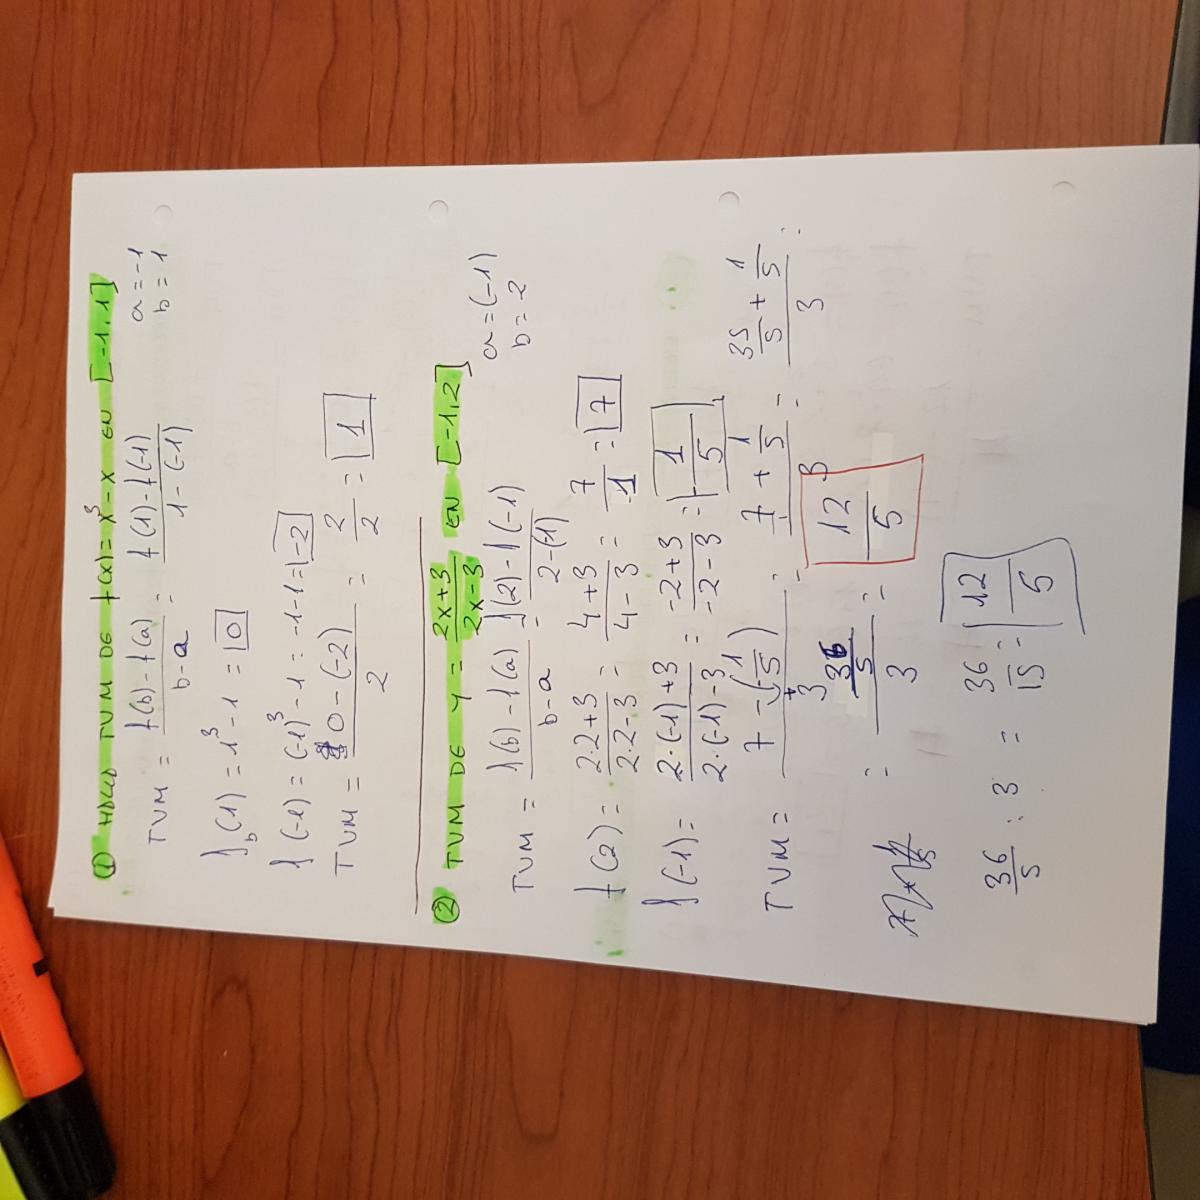 ① HALLO TVM DE f(x) = x³ - x EN [-1, 1]
TVM = f(b) - f(a) / b - a = f(1) - f(-1) / 1 - (-1)
a = -1
b = 1
f(1) = 1³ - 1 = 0
b
f(-1) = (-1)³ - 1 = -1 - 1 = -2
TVM = 0 - (-2) / 2 = 2 / 2 = 1
② TVM DE y = 2x + 3 / 2x - 3 EN [-1, 2]
TVM = f(b) - f(a) / b - a = f(2) - f(-1) / 2 - (-1)
a = (-1)
b = 2
f(2) = 2·2 + 3 / 2·2 - 3 = 4 + 3 / 4 - 3 = 7 / 1 = 7
f(-1) = 2·(-1) + 3 / 2·(-1) - 3 = -2 + 3 / -2 - 3 = - 1 / 5
TVM = 7 - (- 1 / 5) / 3 = 7 + 1 / 5 / 3 = 35 / 5 + 1 / 5 / 3 =
= 36 / 5 / 3 = 12 / 5
36 / 5 : 3 = 36 / 15 = 12 / 5